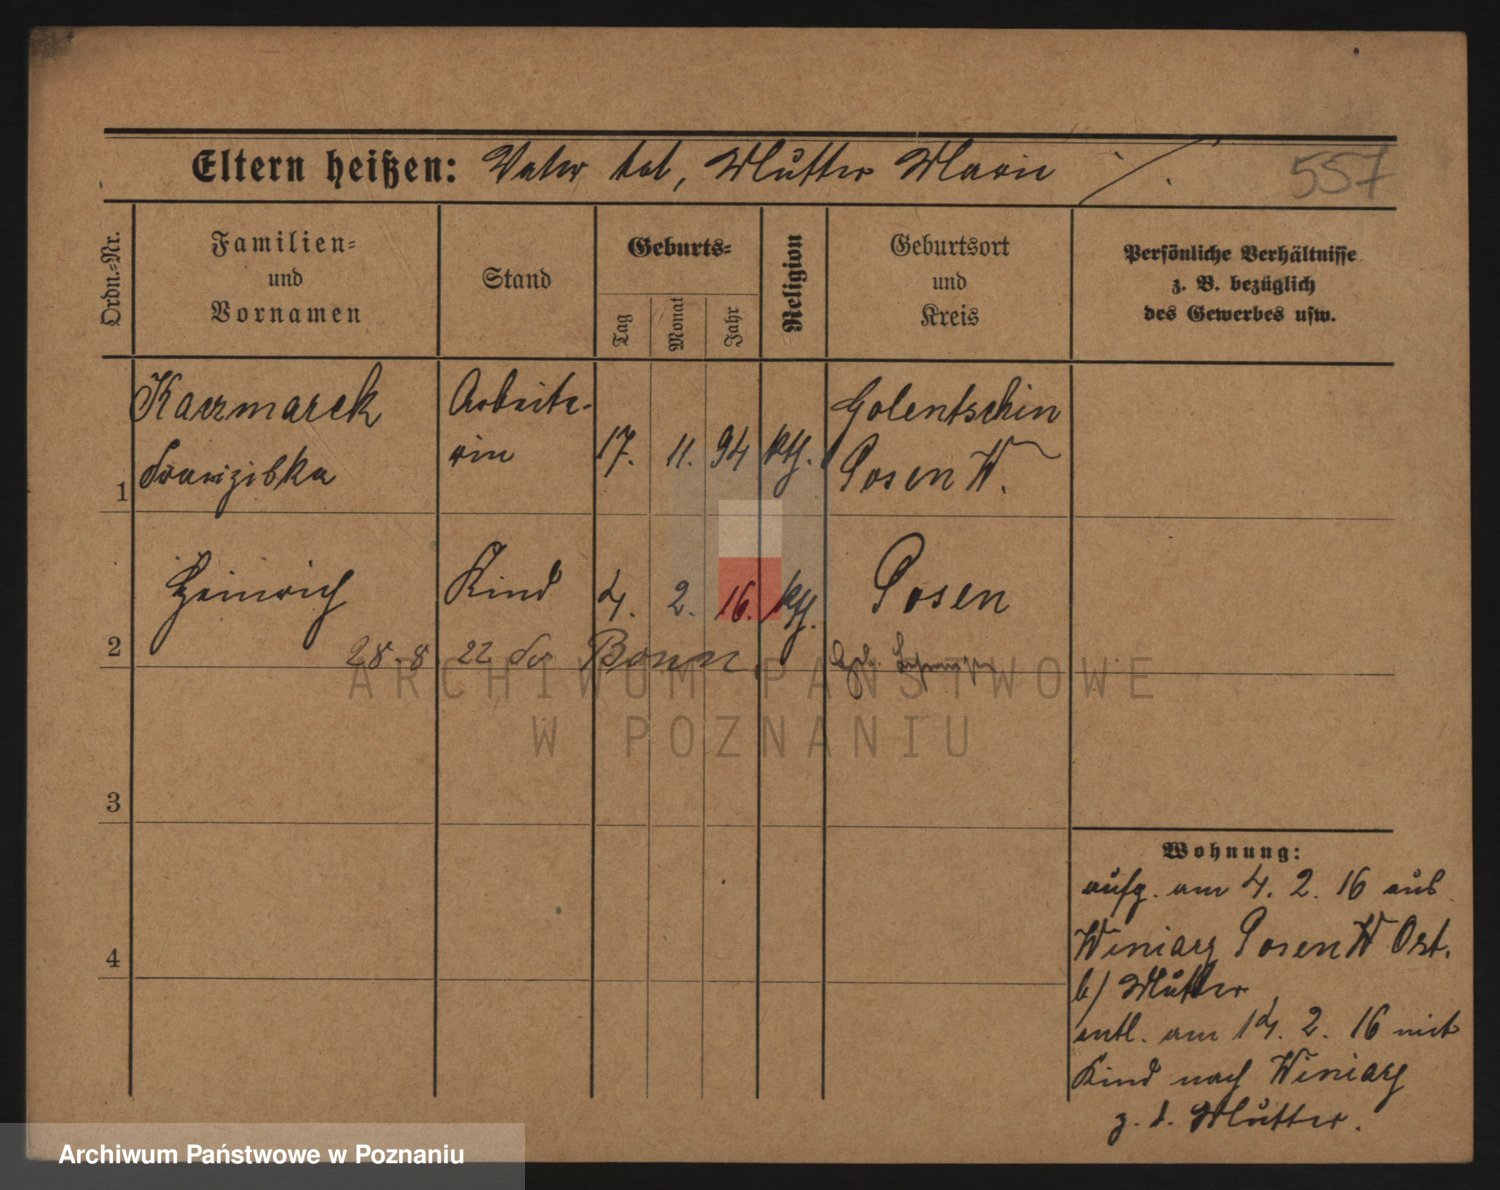 Eltern heißen: Vater tot, Mutter Marie ./.
557
Ordn.=Nr.
Familien=
und
Vornamen
Stand
Geburts=
Tag
Monat
Jahr
Religion
Geburtsort
und
Kreis
Persönliche Verhältnisse
z. B. bezüglich
des Gewerbes usw.
1
Kaczmarek
Franziska
Arbeite-
rin
17. 11. 94
kth.
Golentschin
Posen W.
2
Heinrich
Kind
4. 2. 16.
kth.
Posen
28.8 22 Bonn
3
4
Wohnung:
aufg. am 4. 2. 16 aus
Winiary Posen W Ost.
b/ Mutter
entl. am 14. 2. 16 mit
Kind nach Winiary
z. d. Mutter.
ARCHIWUM PAŃSTWOWE
W POZNANIU
Archiwum Państwowe w Poznaniu